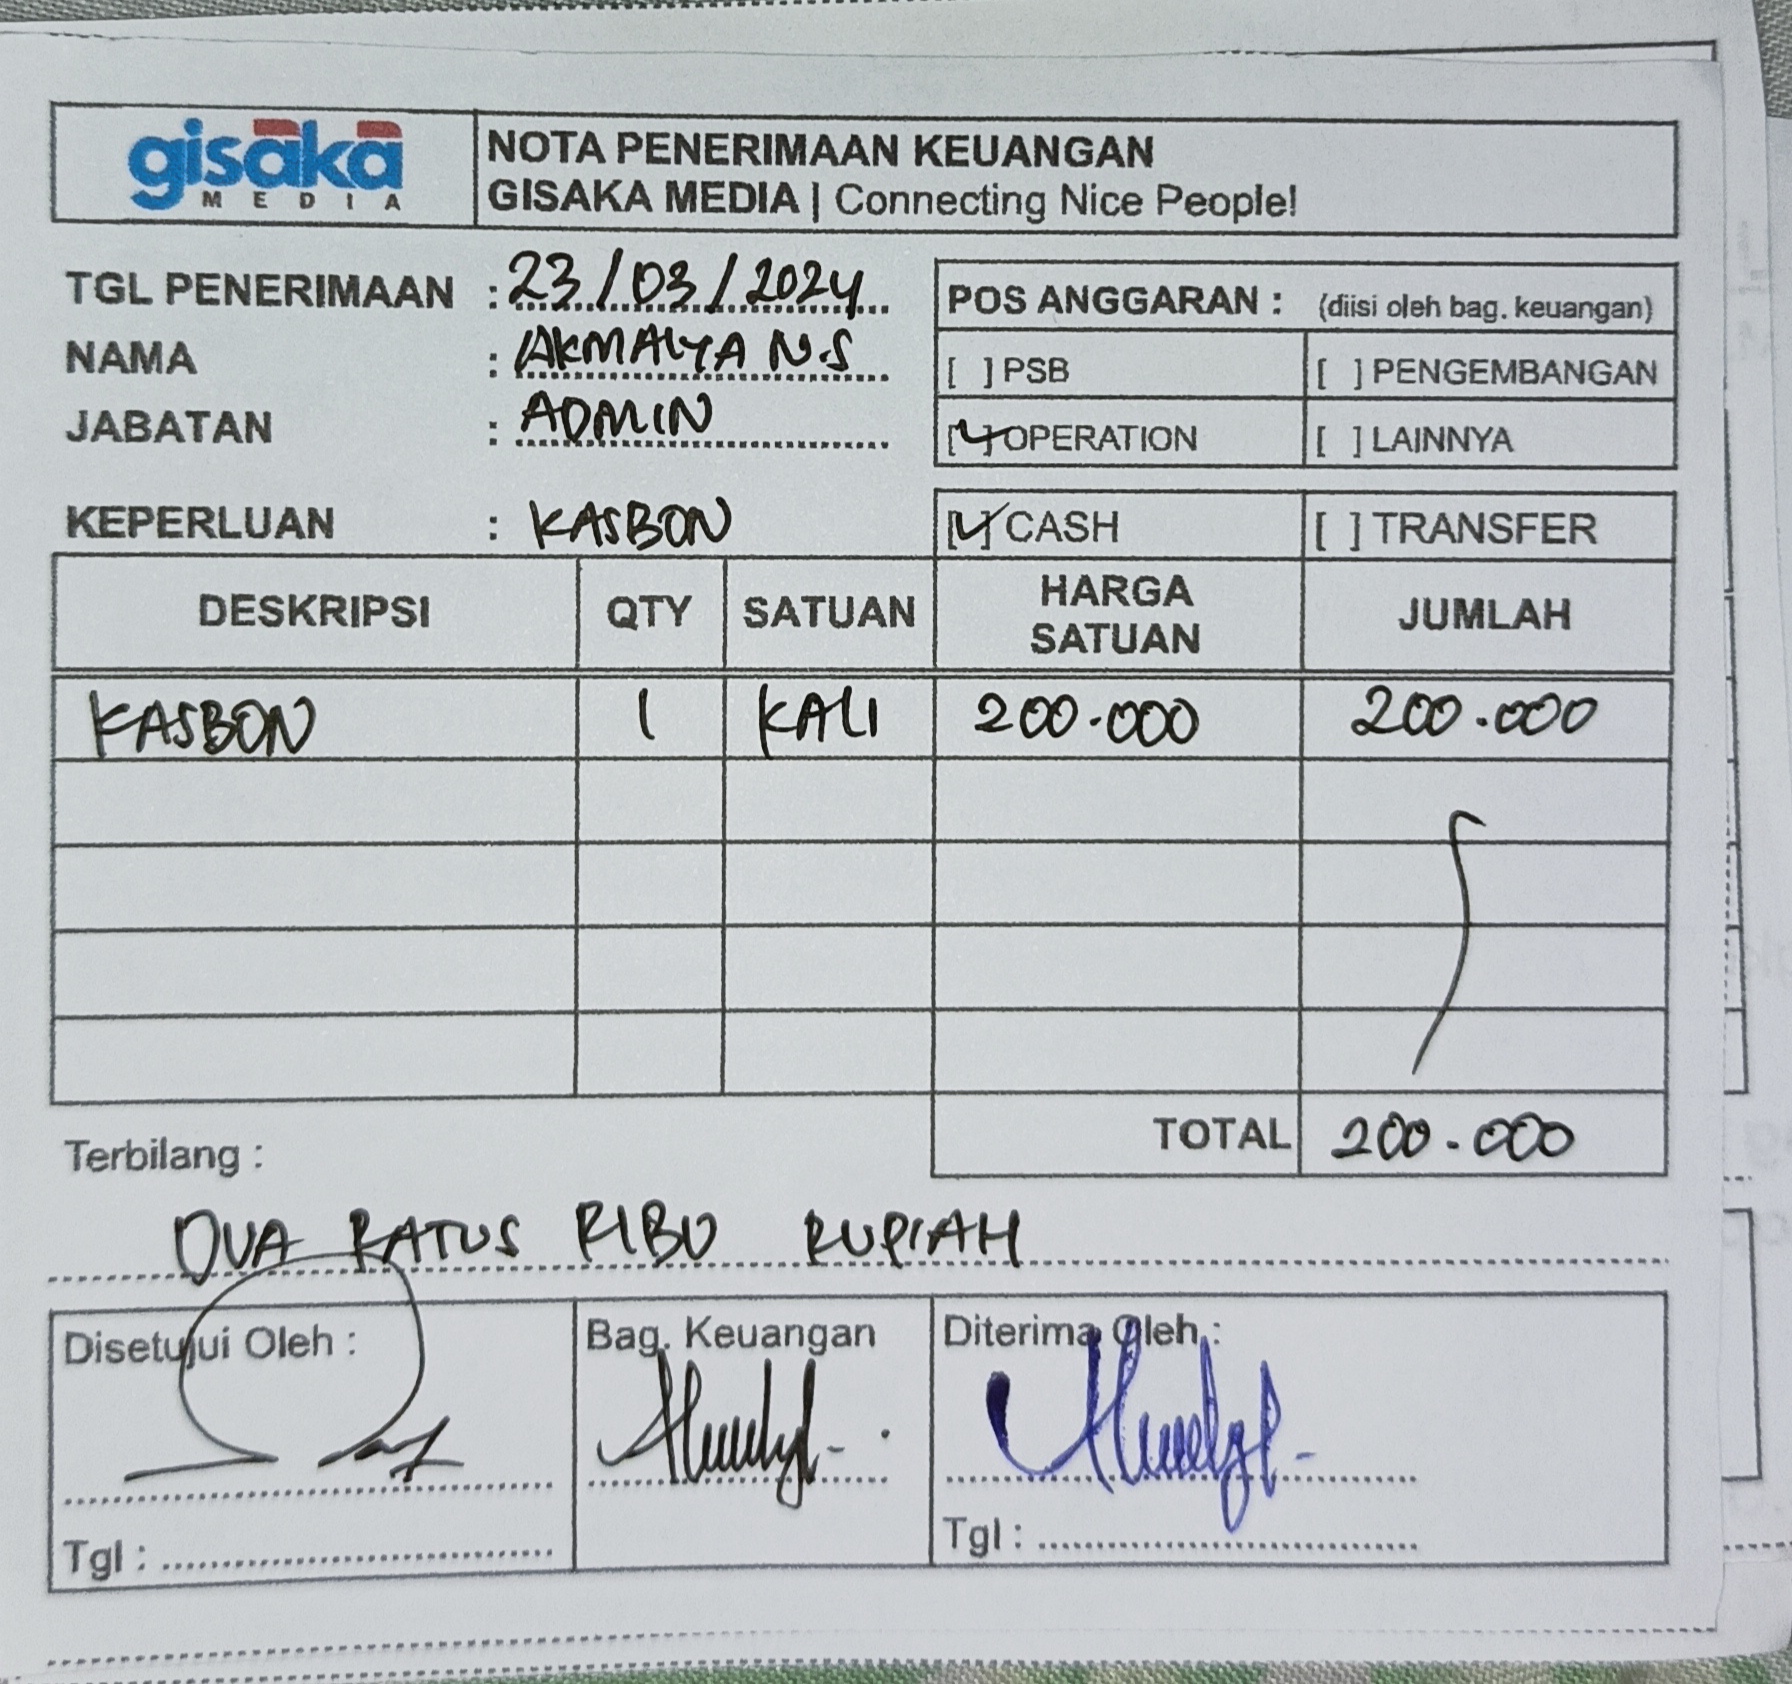 gisaka
MEDIA
NOTA PENERIMAAN KEUANGAN
GISAKA MEDIA | Connecting Nice People!
TGL PENERIMAAN : 23/03/2024
NAMA : AKMALYA N.S
JABATAN : ADMIN
POS ANGGARAN : (diisi oleh bag. keuangan)
[ ] PSB [ ] PENGEMBANGAN
[✓] OPERATION [ ] LAINNYA
KEPERLUAN : KASBON
[✓] CASH [ ] TRANSFER
DESKRIPSI QTY SATUAN HARGA SATUAN JUMLAH
KASBON 1 KALI 200.000 200.000
TOTAL 200.000
Terbilang :
DUA RATUS RIBU RUPIAH
Disetujui Oleh : Bag. Keuangan Diterima Oleh :
Tgl : Tgl :